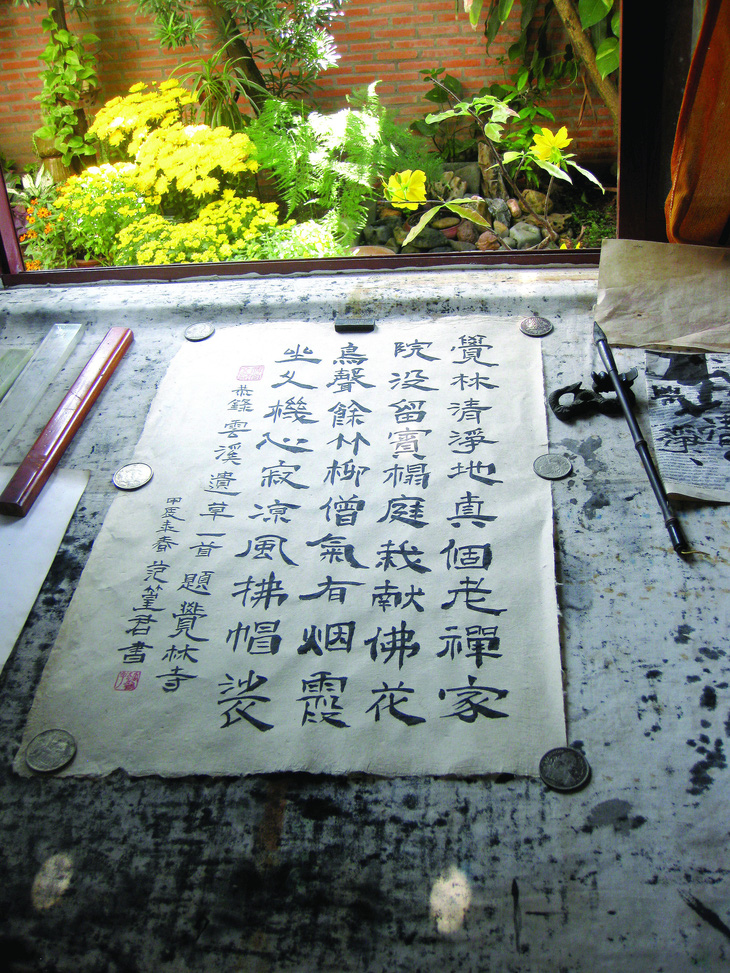 覺林清淨地真個老禪家
院没留賓榻庭栽献佛花
鳥聲餘竹柳僧氣有烟霞
坐久機心寂凉風拂帽裟
恭錄雲溪遺草一首題覺林寺
甲辰春范篁君書